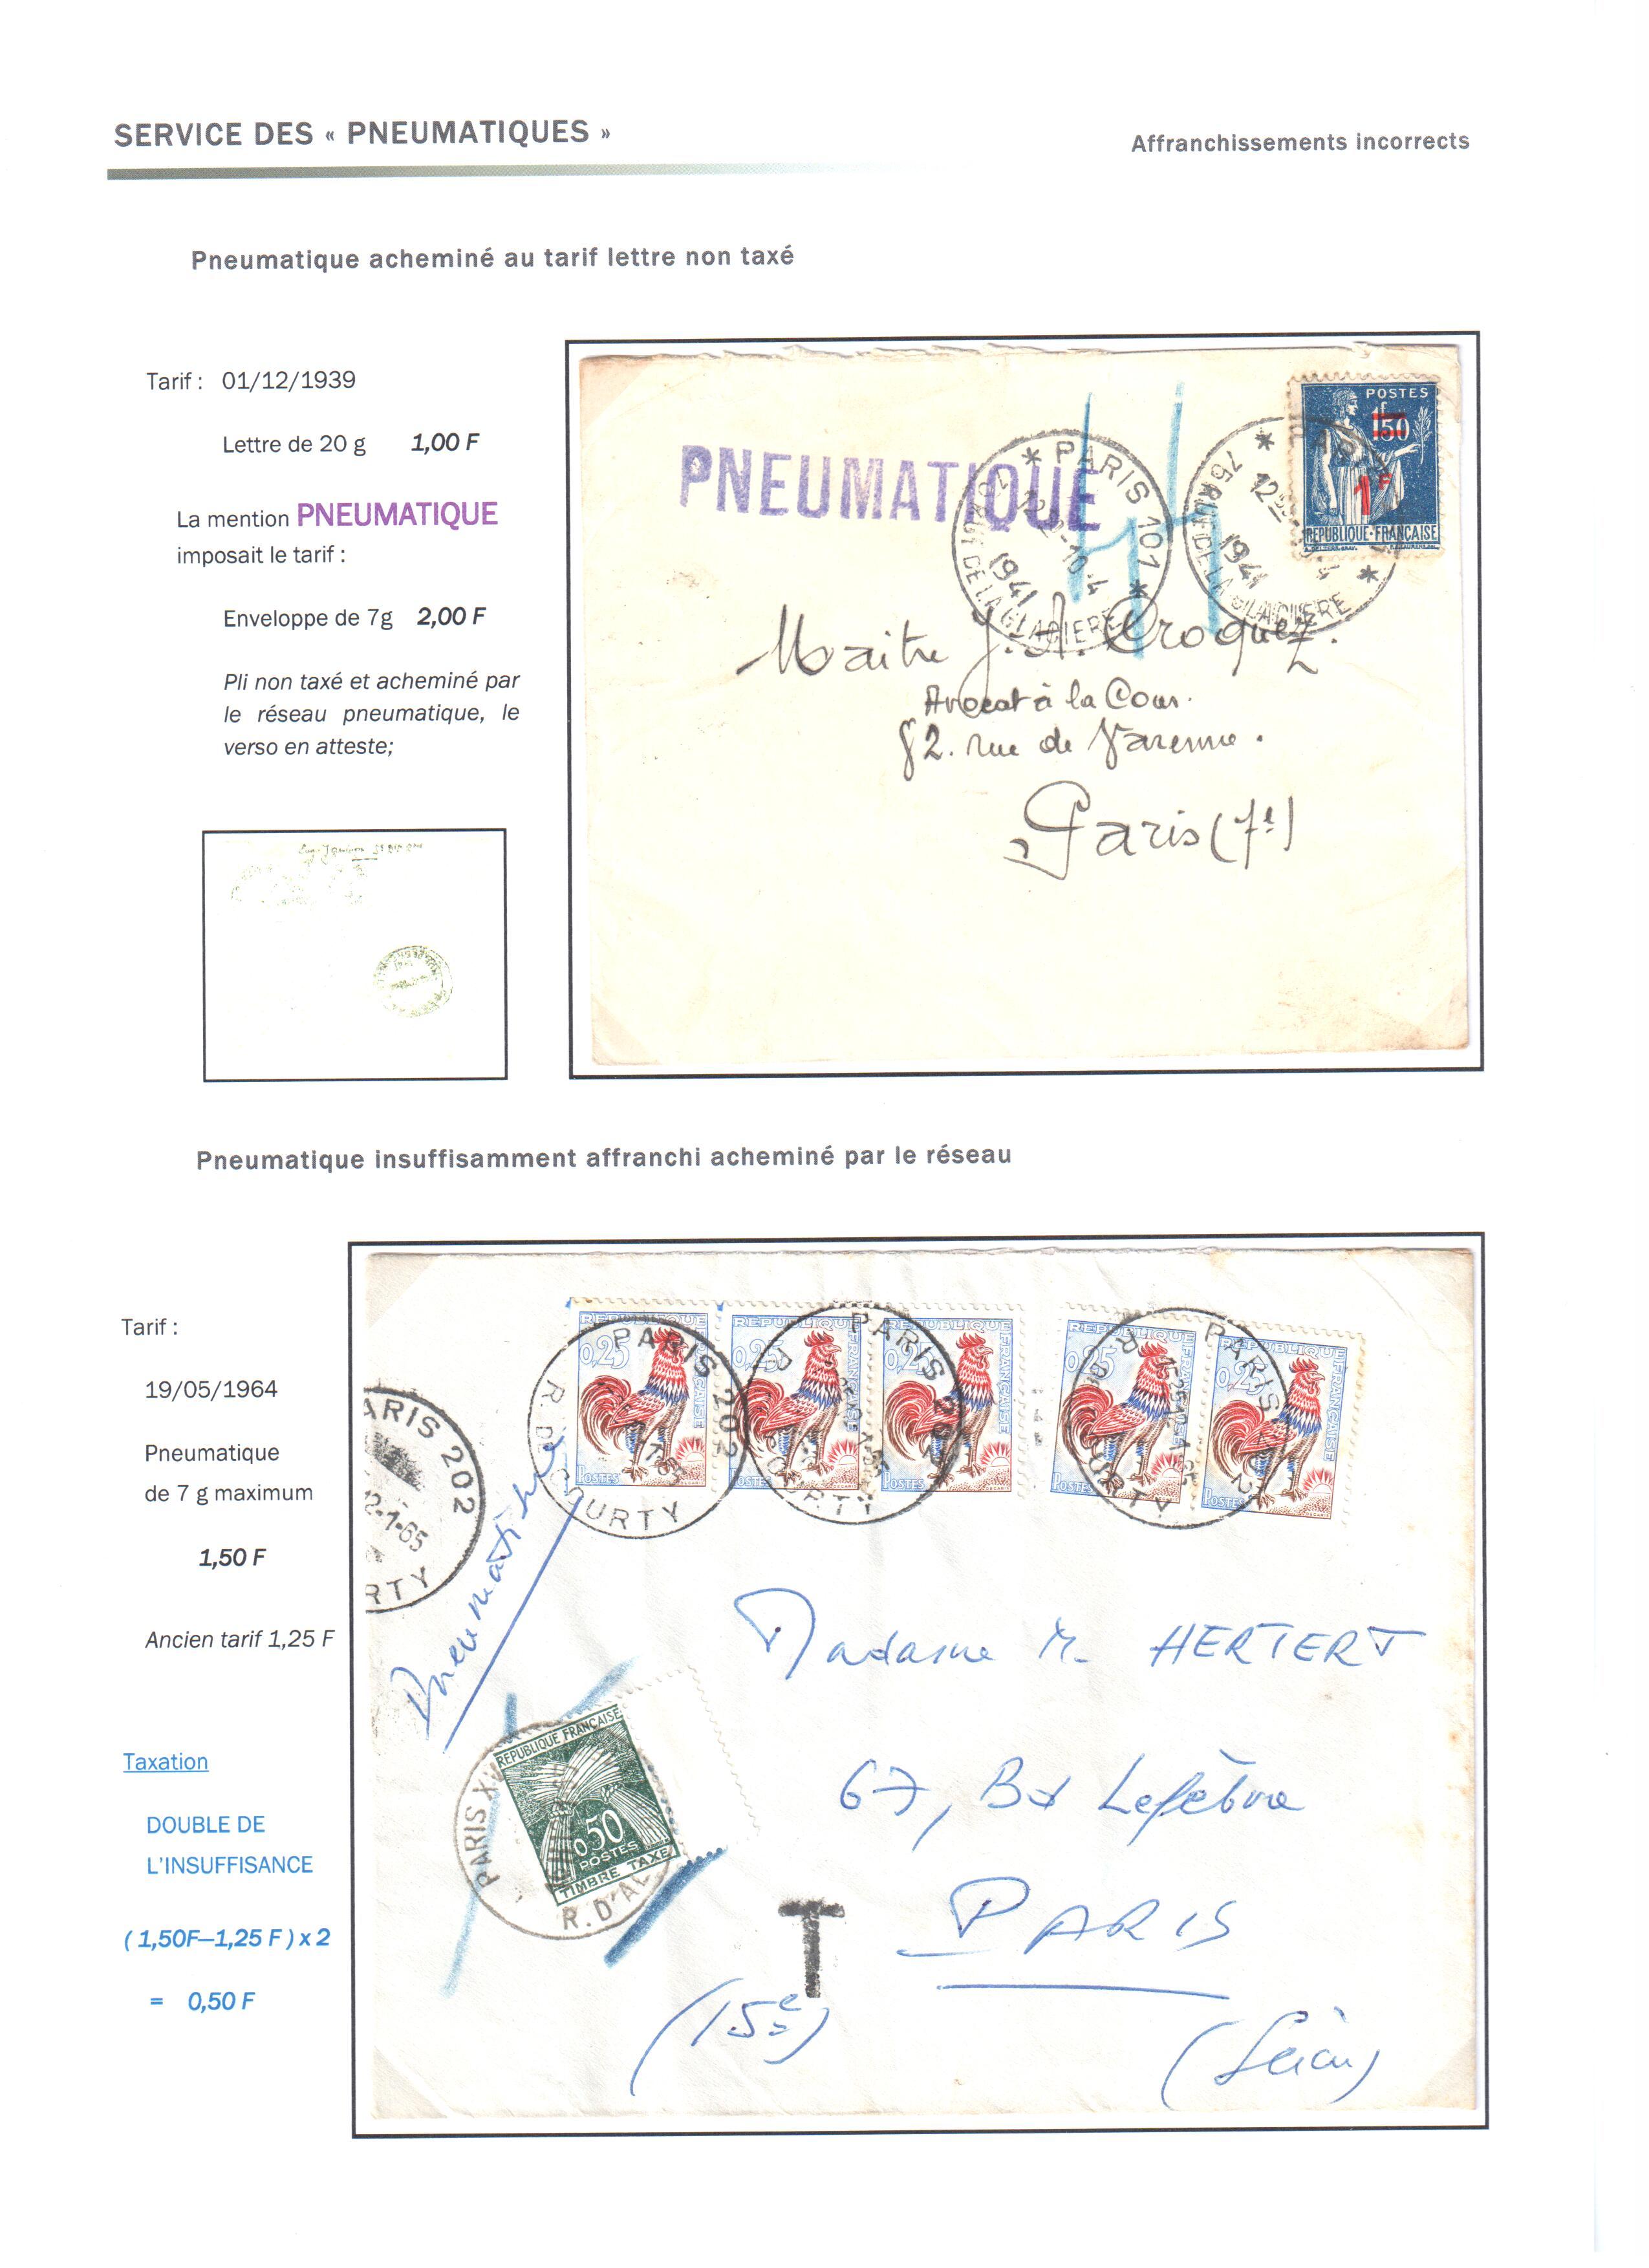 SERVICE DES « PNEUMATIQUES »
Affranchissements incorrects
Pneumatique acheminé au tarif lettre non taxé
Tarif : 01/12/1939
Lettre de 20 g 1,00 F
La mention PNEUMATIQUE
imposait le tarif :
Enveloppe de 7g 2,00 F
Pli non taxé et acheminé par
le réseau pneumatique, le
verso en atteste;
PNEUMATIQUE
* PARIS 101 *
1941
DE LA GLACIERE
75 RUE DE LA GLACIERE
1941
POSTES
1F50
1F
REPUBLIQUE-FRANÇAISE
Maitre J. A. Croquez.
Avocat à la Cour.
82. rue de Varenne.
Paris (7e)
Pneumatique insuffisamment affranchi acheminé par le réseau
Tarif :
19/05/1964
Pneumatique
de 7 g maximum
1,50 F
Ancien tarif 1,25 F
Taxation
DOUBLE DE
L'INSUFFISANCE
( 1,50F–1,25 F ) x 2
= 0,50 F
REPUBLIQUE FRANÇAISE 0,25 POSTES
REPUBLIQUE FRANÇAISE 0,25 POSTES
REPUBLIQUE FRANÇAISE 0,25
REPUBLIQUE FRANÇAISE 0,25 POSTES
REPUBLIQUE FRANÇAISE 0,25 POSTES
PARIS 202
R. DE COURTY
PARIS 202
COURTY
PARIS 202
COURTY
ARIS 202
12-1-65
RTY
Pneumatique
Madame M. HERTERT
67, Bd Lefèbvre
PARIS
(15e)
(Seine)
REPUBLIQUE FRANÇAISE
0,50
POSTES
TIMBRE TAXE
PARIS XV
R. D'AL
T